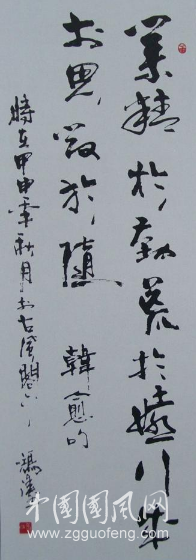 業精於勤荒於嬉行成
於思毀於隨 韓愈句
時在甲申年秋月於古風閣
中国国风网
www.zgguofeng.com